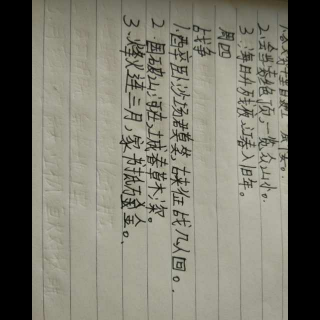 2.会当凌绝顶,一览众山小。
3.海日生残夜,江春入旧年。
周四
战争
1.醉卧沙场君莫笑,古来征战几人回。
2.国破山河在,城春草木深。
3.烽火连三月,家书抵万金。